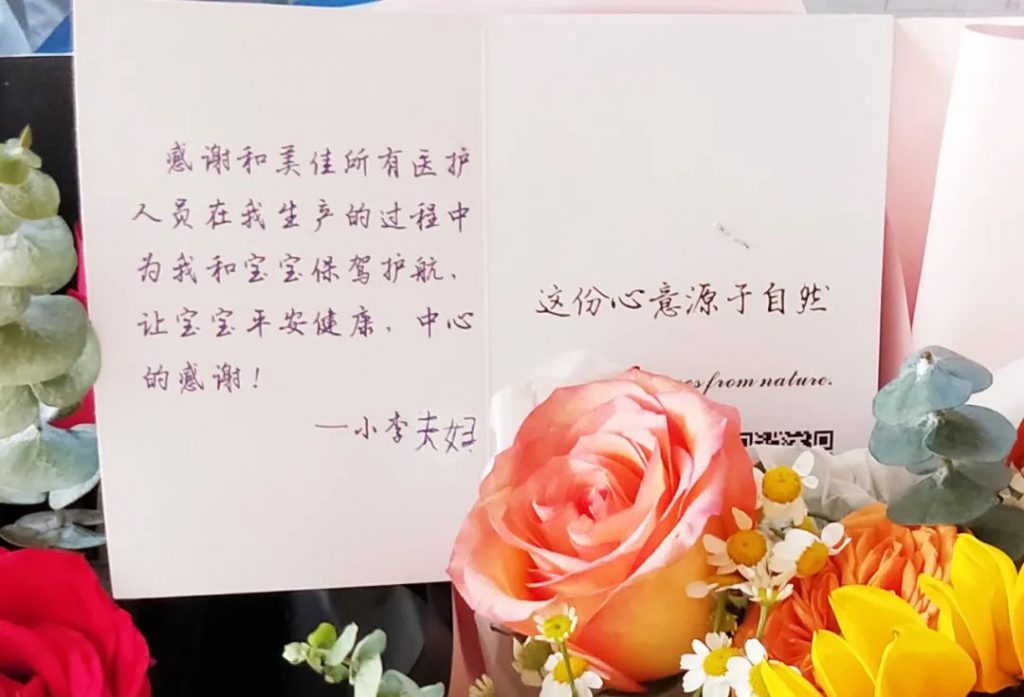 感谢和美佳所有医护
人员在我生产的过程中
为我和宝宝保驾护航,
让宝宝平安健康,中心
的感谢!
—小李夫妇
这份心意源于自然
from nature.